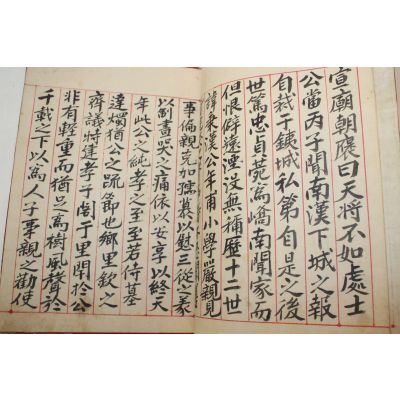 宣廟朝褒曰天將不如處士
公當丙子聞南漢下城之報
自裁于鐵城私第自是之後
世篤忠貞菀爲嶠南聞家而
但恨僻遠湮沒無補歷十二世
諱秉漢公年甫小學嚴親見
事倫親克加孺慕以懋三從之義
以劃晝哭之痛依以安享以終天
年此公之純孝之至若侍墓
達燭猶公之疏節也鄉里欽之
齊議特建孝子閭于里閈於公
非有輕重而猶足爲樹風聲於
千載之下以爲人子事親之勸使